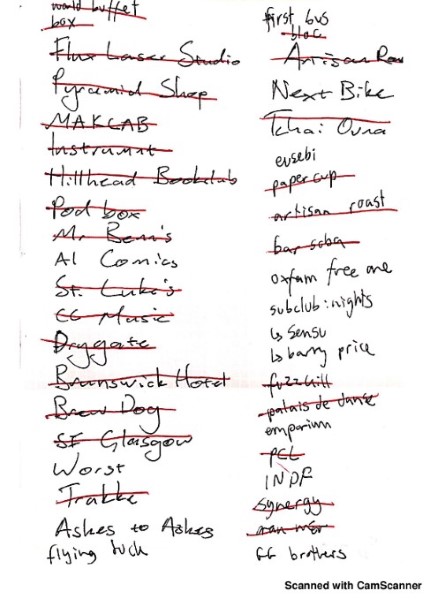 world buffet
box
Flux Laser Studio
Pyramid Shop
MAKLAB
Instrumnt
Hillhead Bookclub
Pod box
Mr Ben's
A1 Comics
St. Luke's
CC Music
Drygate
Brunswick Hotel
Brew Dog
SF Glasgow
Worst
Trakke
Ashes to Ashes
flying duck
first bus
bloc
Artisan Roa
Next Bike
Tchai Ovna
eusebi
paper cup
artisan roast
bar soba
oxfam free one
subclub: nights
↳ Sensu
↳ barry price
fuzzkill
palais de danse
emporium
PCL
INDF
synergy
GG brothers
Scanned with CamScanner